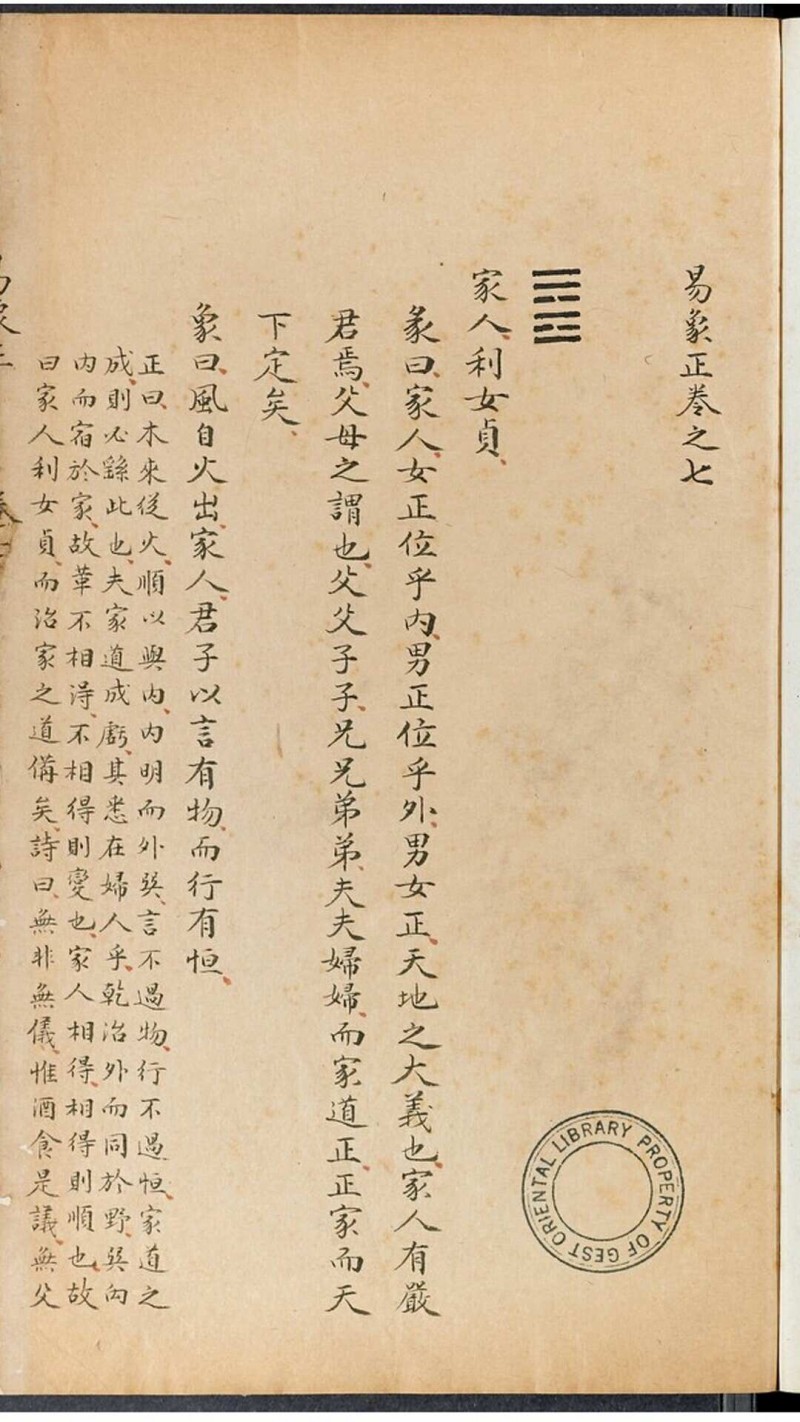 易象正卷之七
家人、利女貞、
彖曰、家人、女正位乎內、男正位乎外、男女正、天地之大義也、家人有嚴
君焉、父母之謂也、父父子子、兄兄弟弟、夫夫婦婦、而家道正、正家而天
下定矣、
象曰、風自火出、家人、君子以言有物、而行有恒、
正曰、木來從火、順以與內、內明而外巽、言不過物、行不過恒、家道之
成、則必繇此也、夫家道成虧、其悉在婦人乎、乾治外而同於野、巽內
內而宿於家、故革不相得、不相得則變也、家人相得、相得則順也、故
曰家人利女貞、而治家之道備矣、詩曰、無非無儀、惟酒食是議、無父
ORIENTAL LIBRARY PROPERTY OF GEST